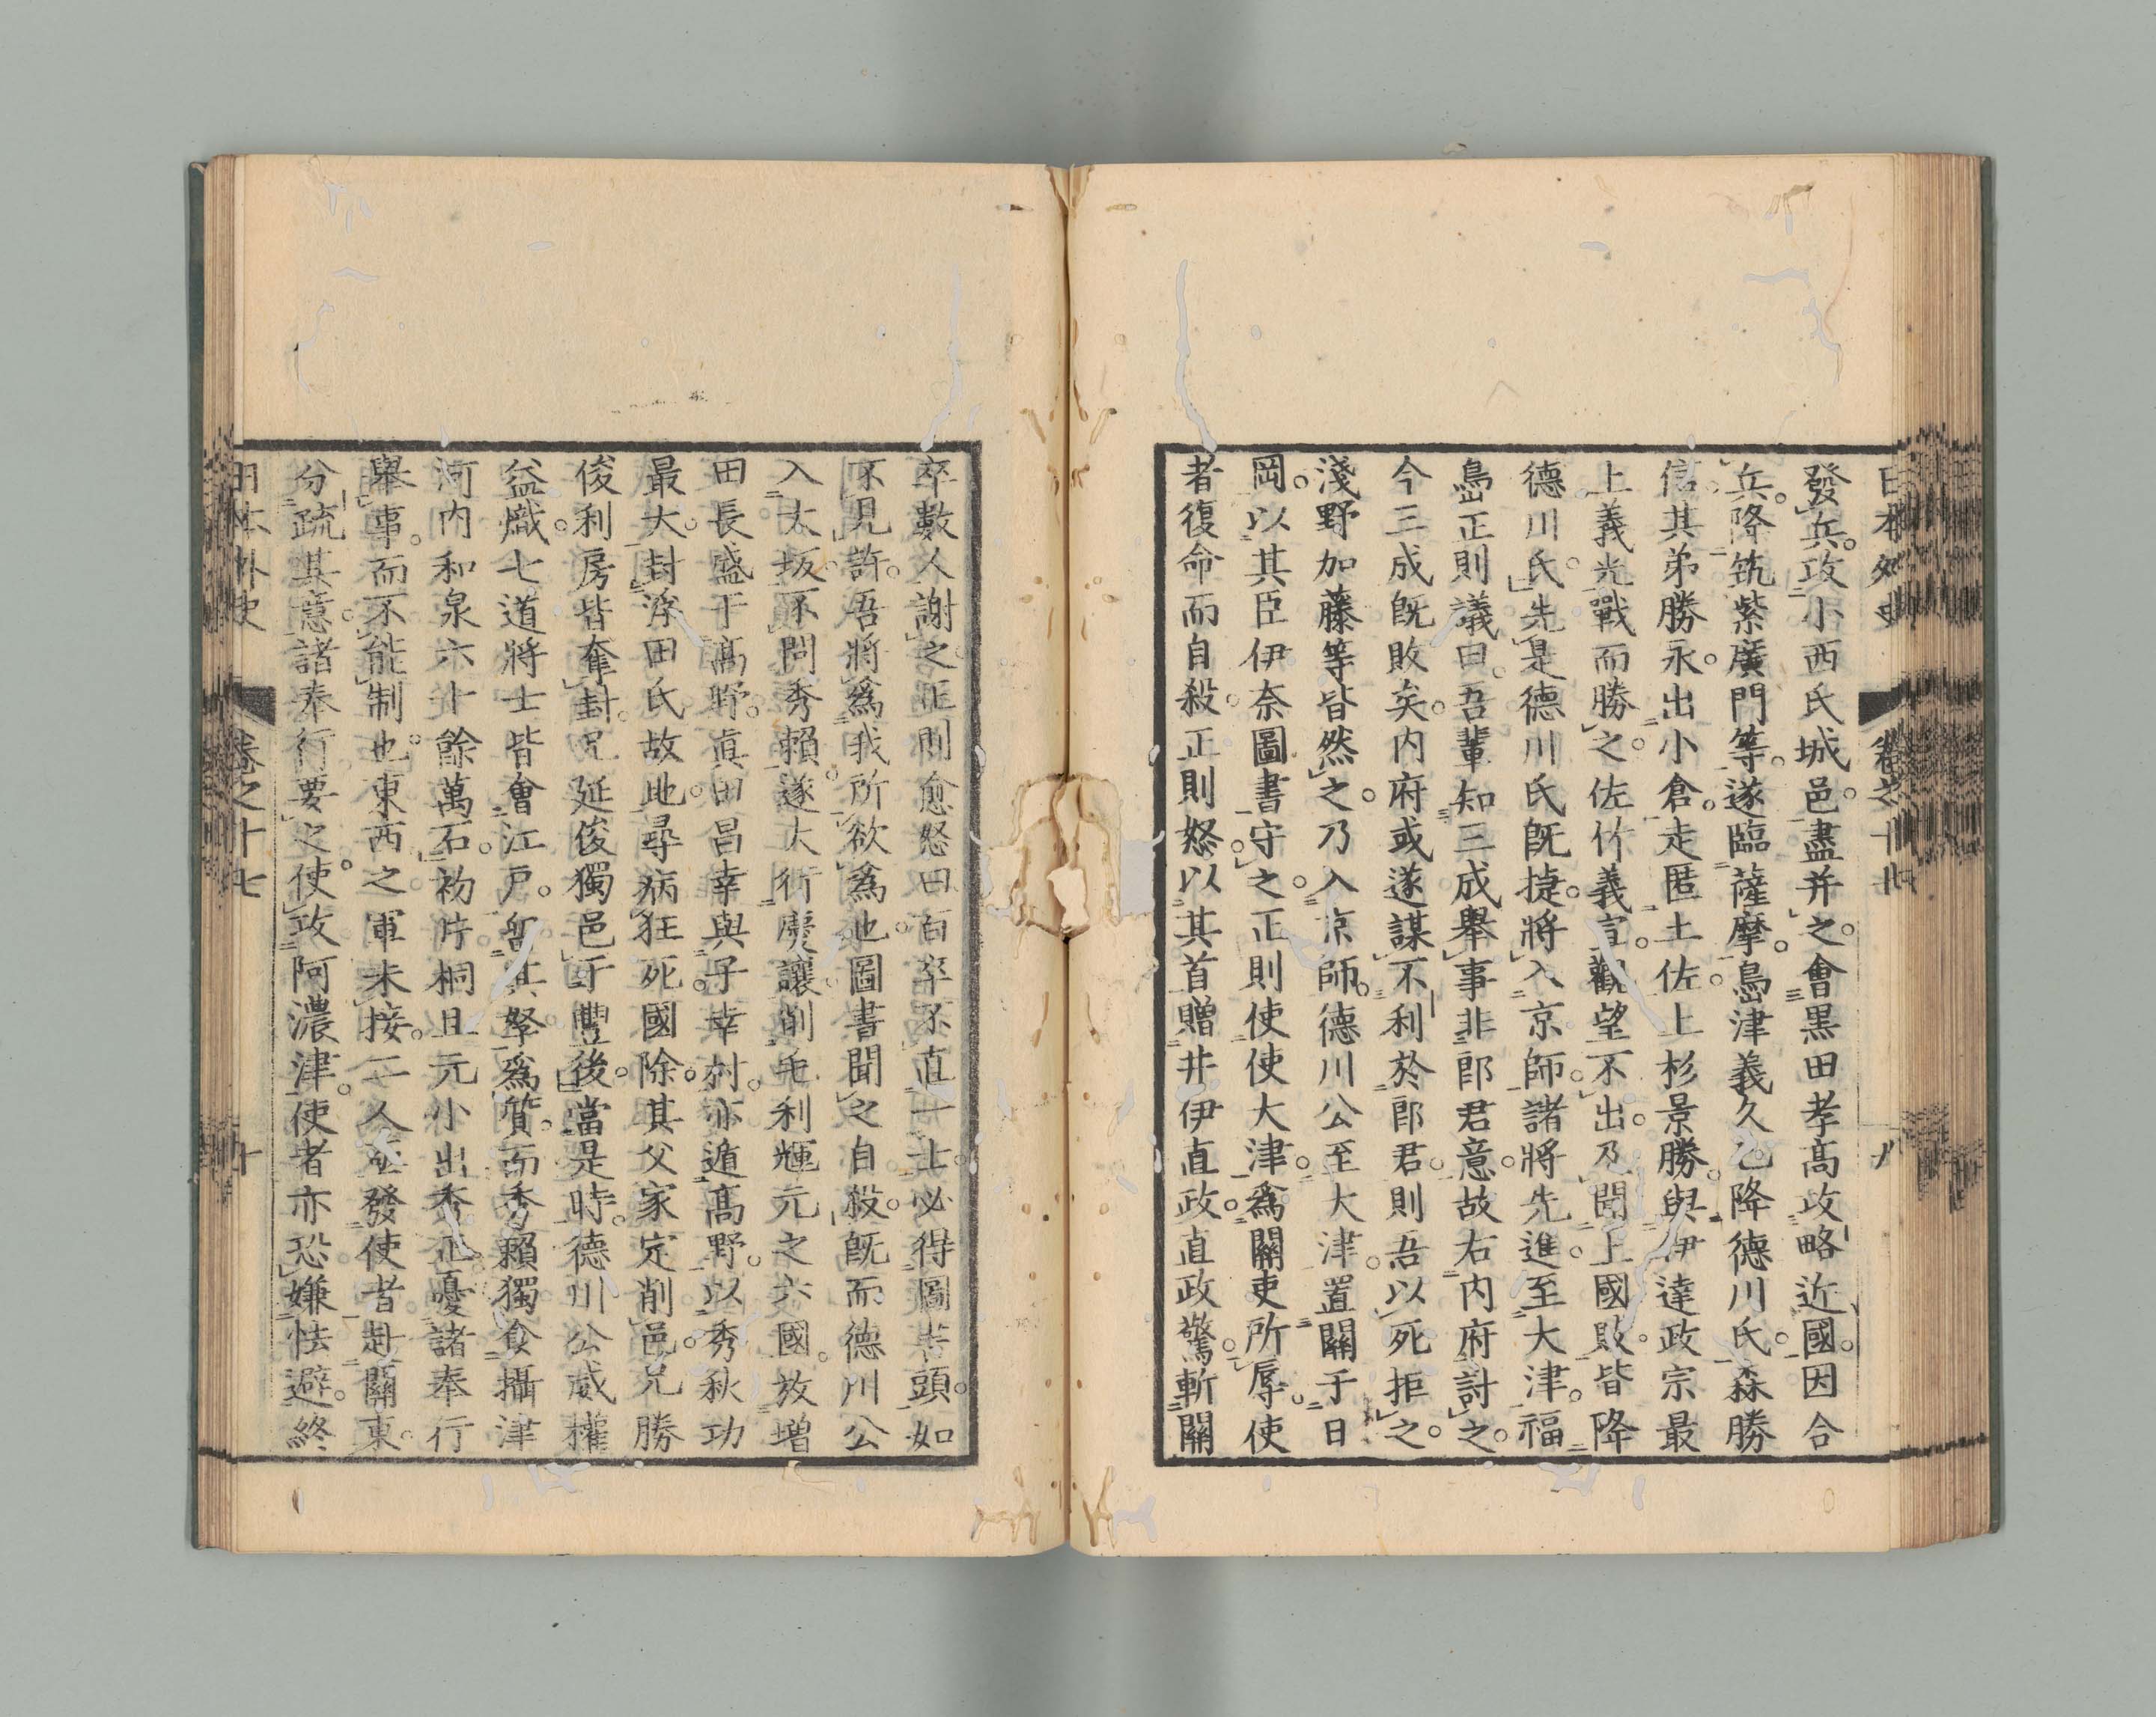 日本外史 卷之十七 九
發兵。攻小西氏城邑。盡并之。會黒田孝高攻略近國。因合
兵。降筑紫廣門等。遂臨薩摩。島津義久乞降德川氏。森勝
信其弟勝永。出小倉。走匿土佐。上杉景勝。與伊達政宗最
上義光戰而勝之。佐竹義宣。觀望不出。及聞上國敗。皆降
德川氏。先是德川氏既捷。將入京師。諸將先進。至大津。福
島正則議曰。吾輩知三成擧事非郎君意。故右内府討之。
今三成既敗矣。内府或遂謀不利於郎君。則吾以死拒之。
淺野加藤等皆然之。乃入京師。德川公至大津。置關于日
岡。以其臣伊奈圖書守之。正則使使大津。爲關吏所辱。使
者復命而自殺。正則怒。以其首贈井伊直政。直政驚。斬關
卒數人謝之。正則愈怒曰。百卒不直一士。必得圖書頭。如
不見許。吾將爲我所欲爲也。圖書聞之自殺。既而德川公
入大坂。不問秀賴。遂大行慶讓。削毛利輝元之六國。放增
田長盛于高野。眞田昌幸與子幸村。亦遁高野。以秀秋功
最大。封浮田氏故地。尋病狂死。國除。其父家定削邑。兄勝
俊利房皆奪封。兄延俊獨邑于豐後。當是時。德川公威權
益熾。七道將士皆會江戸。留其孥爲質。而秀賴獨食攝津
河内和泉六十餘萬石。初片桐且元小出秀正。憂諸奉行
擧事。而不能制也。東西之軍未接。二人發使者赴關東。
分疏其意。諸奉行要之使。政阿濃津。使者亦恐嫌怯避。終
日本外史 卷之十七 十